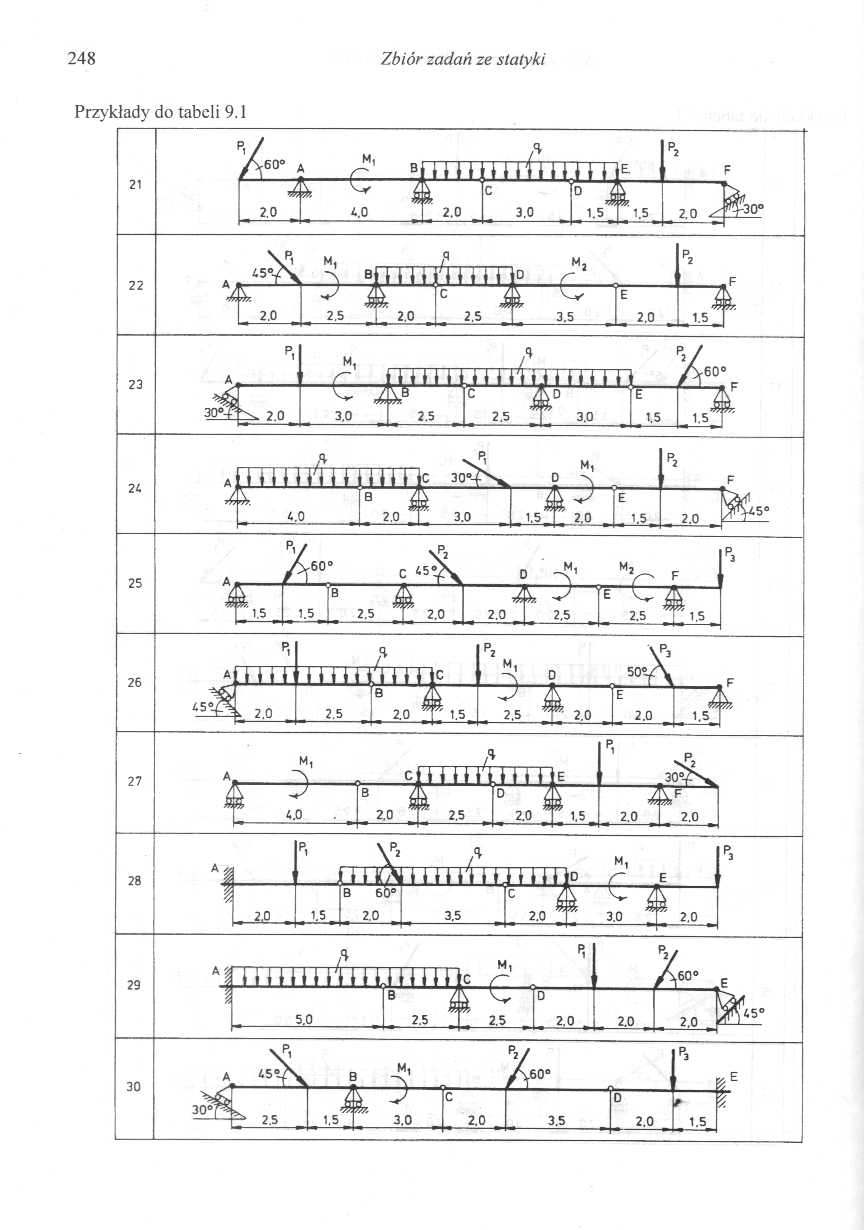 248 Zbiór zadań ze statyki
Przykłady do tabeli 9.1
P₁ 60° A M₁ B q C D E P₂ F 30°
21
2,0 4,0 2,0 3,0 1,5 1,5 2,0
A 45° P₁ M₁ B q C D M₂ E P₂ F
22
2,0 2,5 2,0 2,5 3,5 2,0 1,5
A 30° P₁ M₁ B q C D E P₂ 60° F
23
2,0 3,0 2,5 2,5 3,0 1,5 1,5
A q B C 30° P₁ D M₁ E P₂ F 45°
24
4,0 2,0 3,0 1,5 2,0 1,5 2,0
A P₁ 60° B C 45° P₂ D M₁ E M₂ F P₃
25
1,5 1,5 2,5 2,0 2,0 2,5 2,5 1,5
A 45° P₁ q B C P₂ M₁ D E 50° P₃ F
26
2,0 2,5 2,0 1,5 2,5 2,0 2,0 1,5
A M₁ B C q D E P₁ F 30° P₂
27
4,0 2,0 2,5 2,0 1,5 2,0 2,0
A P₁ B P₂ 60° q C D M₁ E P₃
28
2,0 1,5 2,0 3,5 2,0 3,0 2,0
A q B C M₁ D P₁ P₂ 60° E 45°
29
5,0 2,5 2,5 2,0 2,0 2,0
A 30° 45° P₁ B M₁ C P₂ 60° D P₃ E
30
2,5 1,5 3,0 2,0 3,5 2,0 1,5